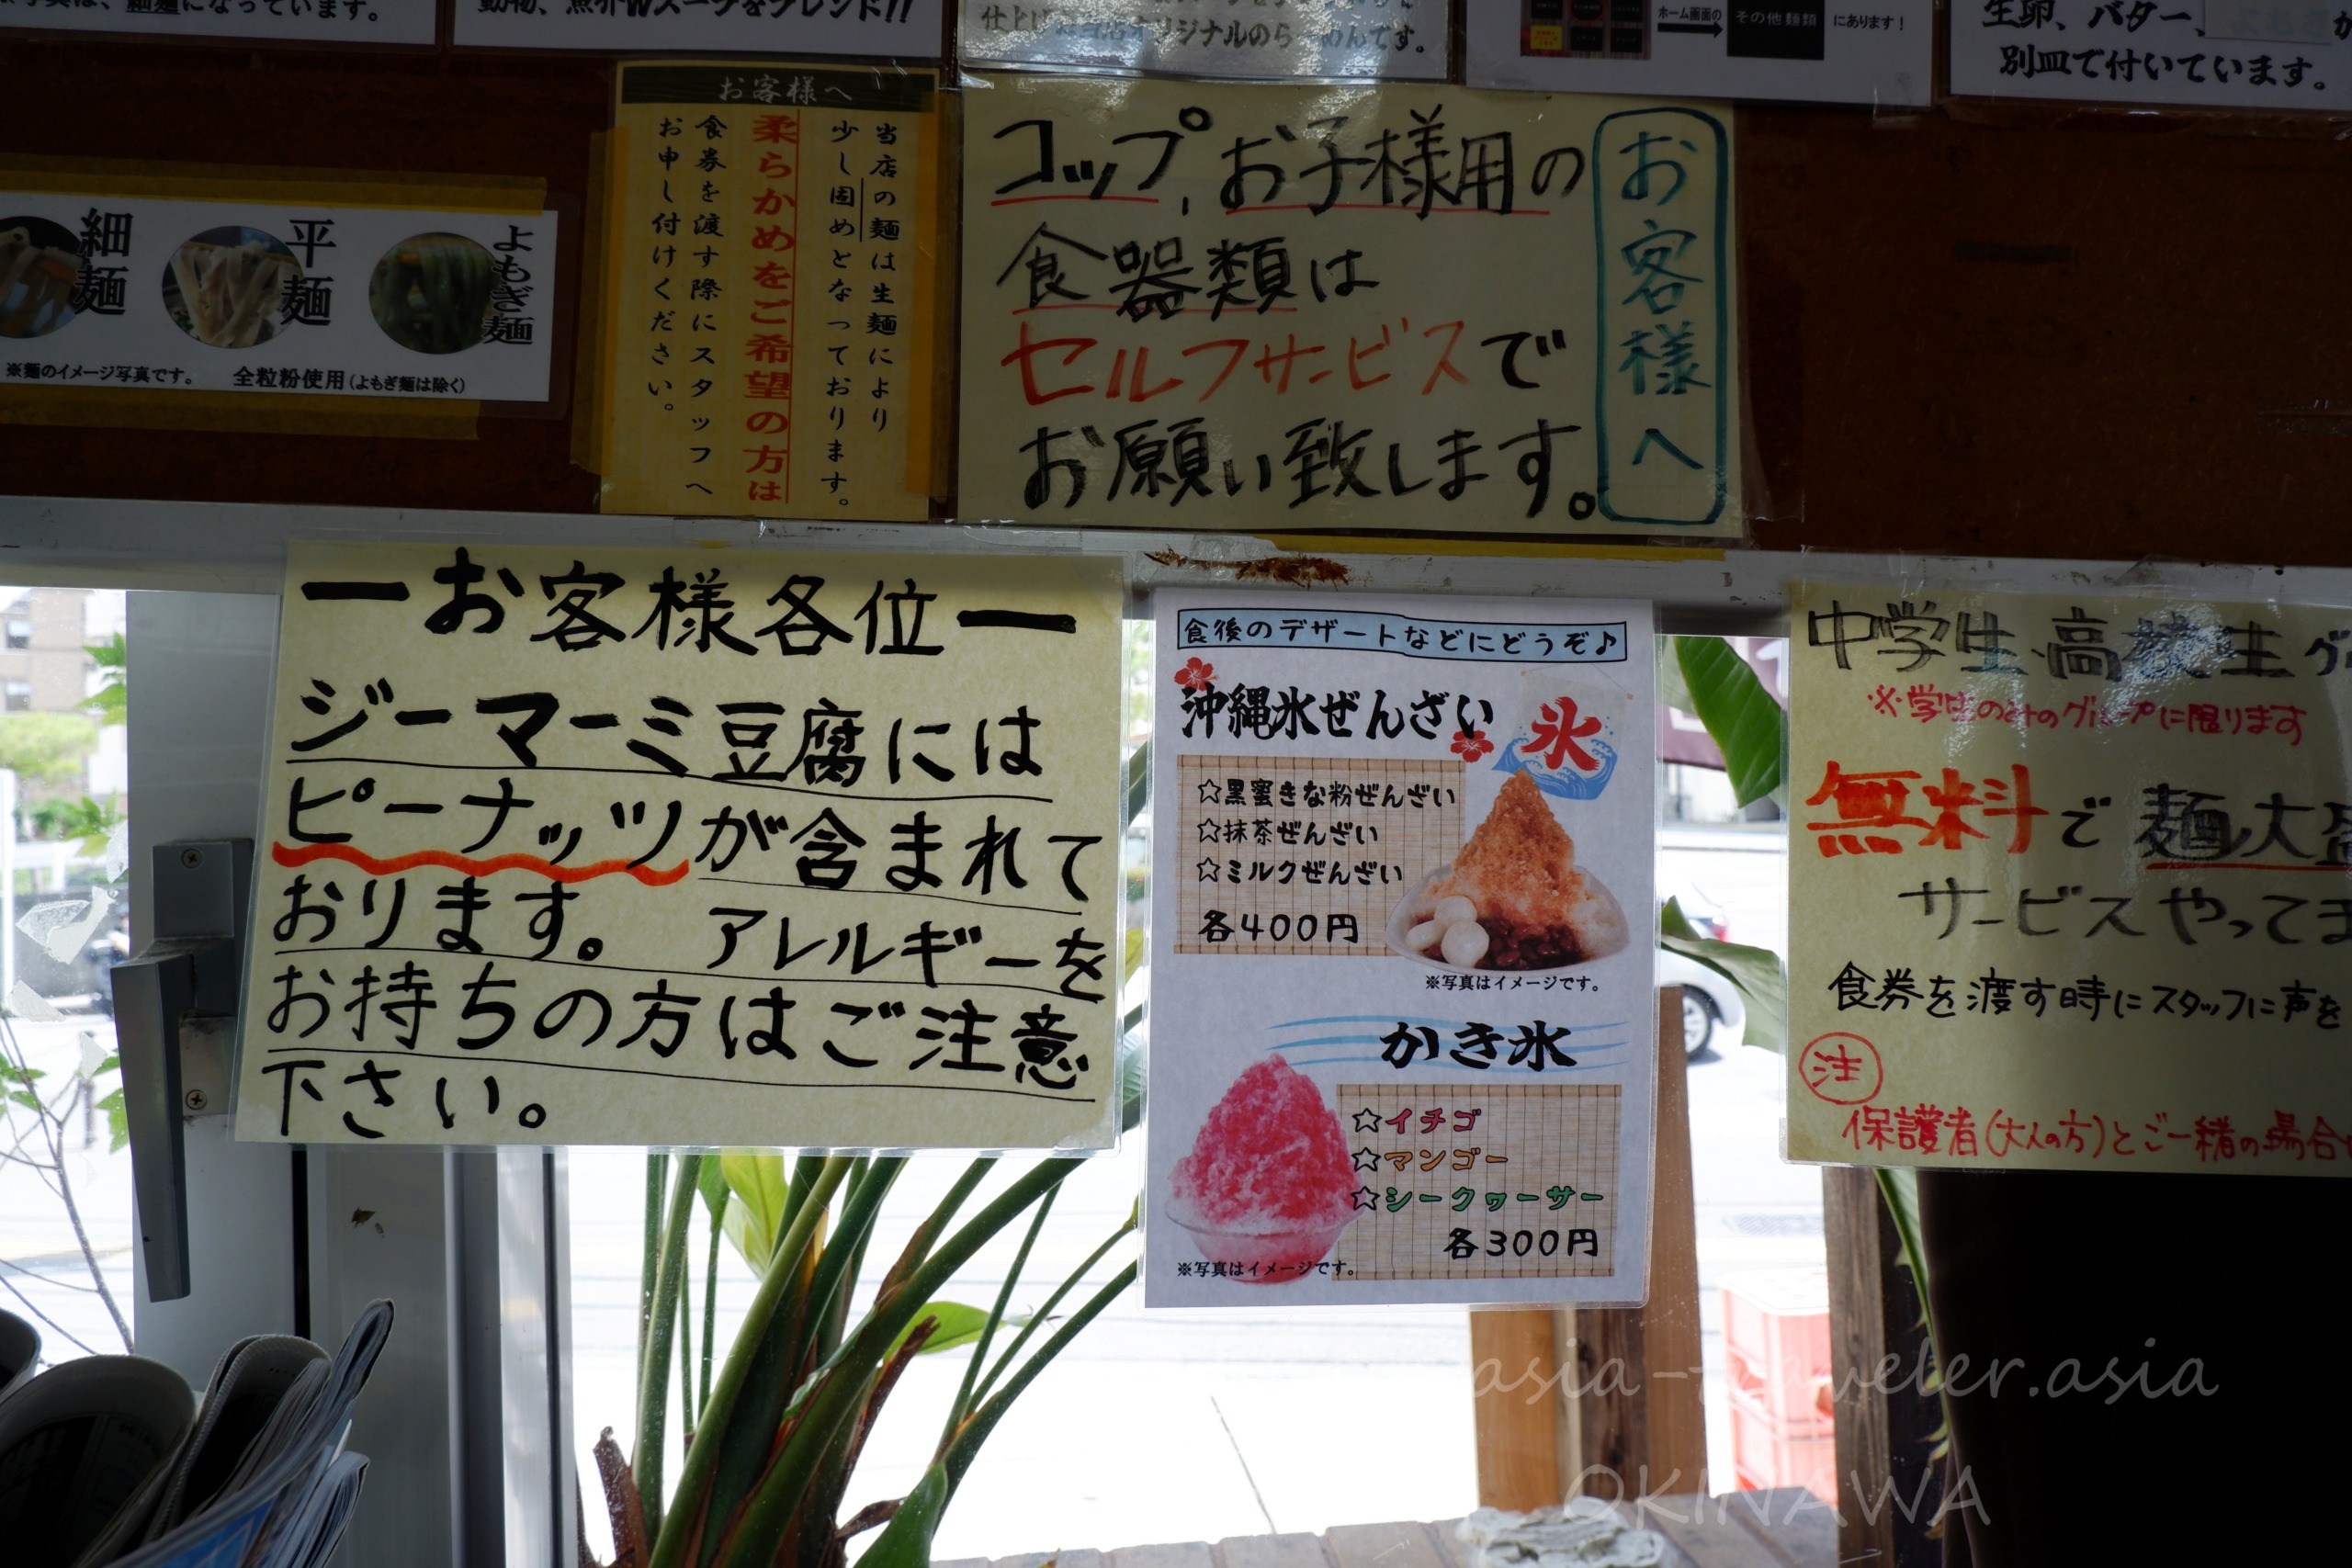 写真は、細麺になっています。
動物、魚介Wスープをブレンド!!
ホーム画面の
その他麺類
にあります!
生卵、バター、
別皿で付いています。
細麺
平麺
よもぎ麺
※麺のイメージ写真です。 全粒粉使用(よもぎ麺は除く)
お客様へ
当店の麺は生麺により
少し固めとなっております。
柔らかめをご希望の方は
食券を渡す際にスタッフへ
お申し付けください。
お客様へ
コップ、お子様用の
食器類は
セルフサービスで
お願い致します。
ーお客様各位ー
ジーマーミ豆腐には
ピーナッツが含まれて
おります。 アレルギーを
お持ちの方はご注意
下さい。
食後のデザートなどにどうぞ♪
沖縄氷ぜんざい
氷
☆黒蜜きな粉ぜんざい
☆抹茶ぜんざい
☆ミルクぜんざい
各400円
※写真はイメージです。
かき氷
☆イチゴ
☆マンゴー
☆シークヮーサー
各300円
※写真はイメージです。
中学生・高校生
※学生のみのグループに限ります
無料で麺大
サービスやってま
食券を渡す時にスタッフに声を
注
保護者(大人の方)とご一緒の場合
asia-traveler.asia
OKINAWA